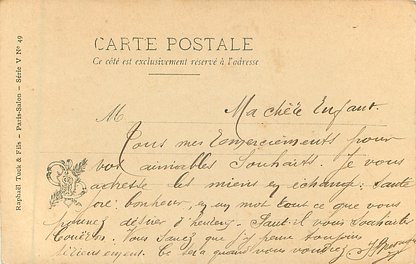 CARTE POSTALE
Ce côté est exclusivement réservé à l'adresse
M
Ma chère Enfant.
Tous mes Remerciements pour
vos aimables Souhaits. Je vous
adresse les miens en échange : Santé
joie, bonheur, en un mot tout ce que vous
pouvez désirer d'heureux. Faut-il vous Souhaiter
Vous Savez que j'y pense toujours
Ce sera quand vous voudrez
Raphaël Tuck & Fils — Paris-Salon — Série V Nº 49